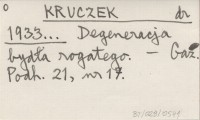 KRUCZEK dr
1933... Degeneracja
bydła rogatego. – Gaz.
Podh. 21, nr 17.